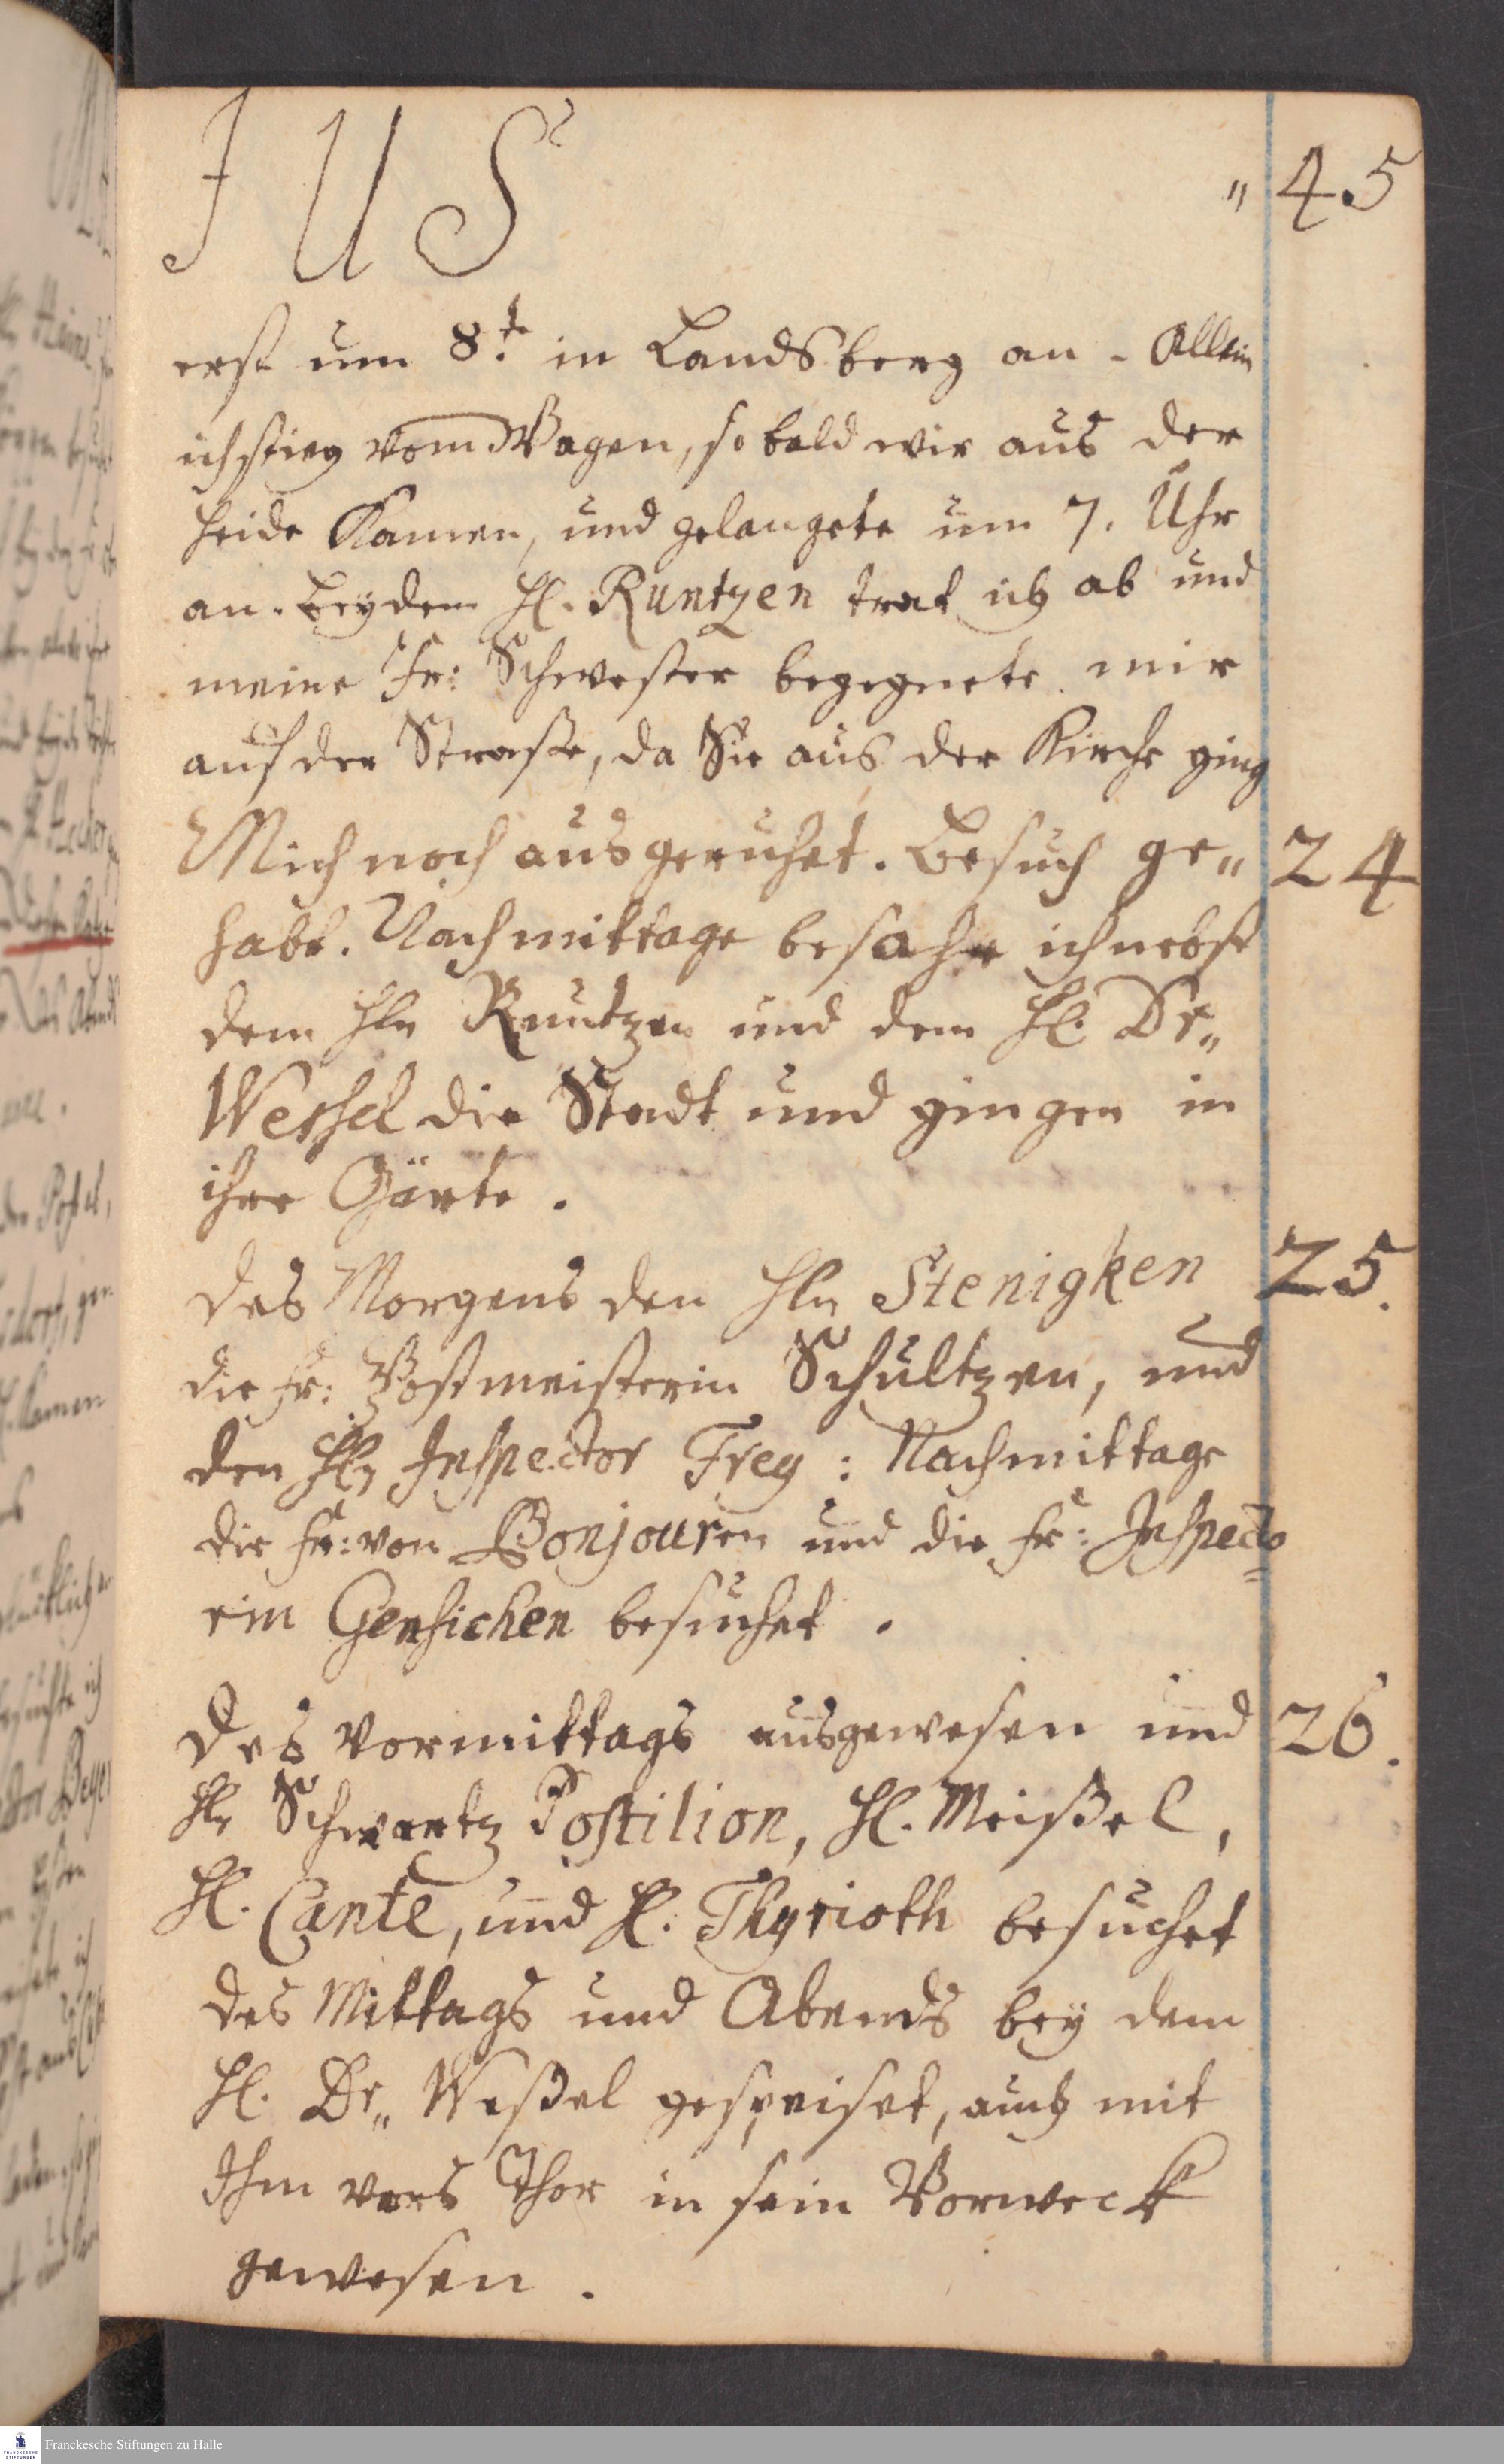 I U S " 45
erst um 8.t. in Landsberg an. Allein
ich stieg vom Wagen, so bald wir aus der
Heide Kamen, und gelangete um 7. Uhr
an. Bey dem H. Runtzen trat ich ab und
meine Fr: Schwester begegnete mir
auf der Straße, da Sie aus der Kirche ging
Mich noch ausgeruhet. Besuch ge„ 24
habt. Nachmittage besahe ich nebst
dem Hln Runtzen und dem H. Dr„
Wessel die Stadt und gingen in
ihre Gärte.
Des Morgens den Hln Stenigken 25.
die Fr: Postmeisterin Schultzen, und
den Hln Inspector Frey: Nachmittage
die Fr: von Bonjouren und die Fr: Inspecto=
rin Gensichen besuchet.
Des Vormittags ausgewesen und 26.
Hln Schwartz Postilion, H. Meißel,
H. Cante, und H. Thyrioth besuchet
des Mittags und Abends bey dem
H. Dr„ Weßel gespeiset, auch mit
Ihm vors Thor in sein Vorweck
gewesen.
Franckesche Stiftungen zu Halle